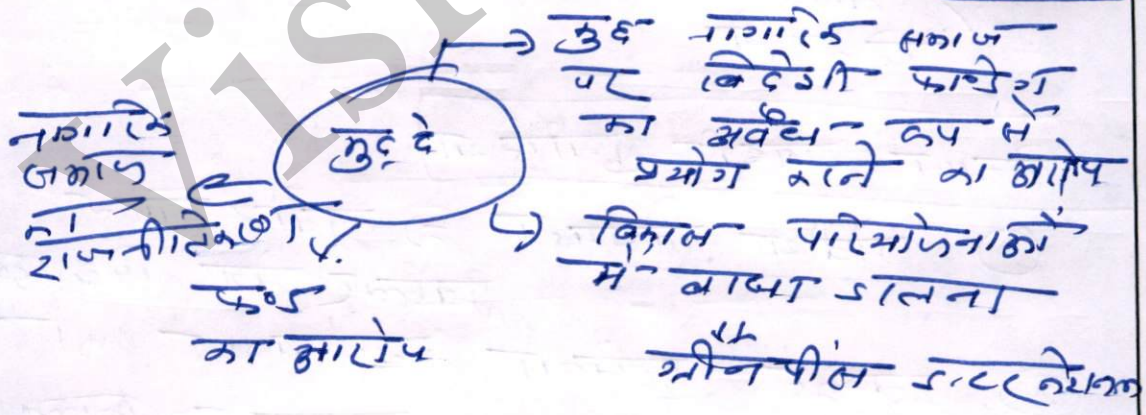 मुद्दे
कुछ नागरिक समाज
पर विदेशी फण्डिंग
का अवैध रूप से
प्रयोग करने का आरोप
विकास परियोजनाओं
में बाधा डालना
ग्रीनपीस इण्टरनेशनल
फण्ड
का आरोप
नागरिक
समाज
का
राजनीतिकरण
Vis